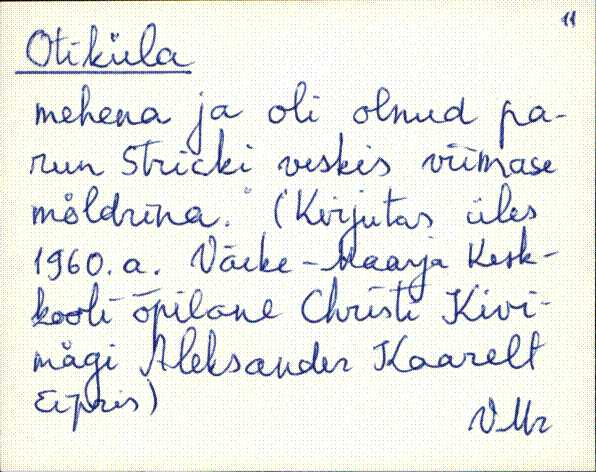 11
Otiküla
mehena ja oli olnud pa-
run Stricki veskis viimase
möldrina." (Kirjutas üles
1960. a. Väike-Maarja Kesk-
kooli õpilane Christi Kivi-
mägi Aleksander Kaarelt
Eipris)
VMr